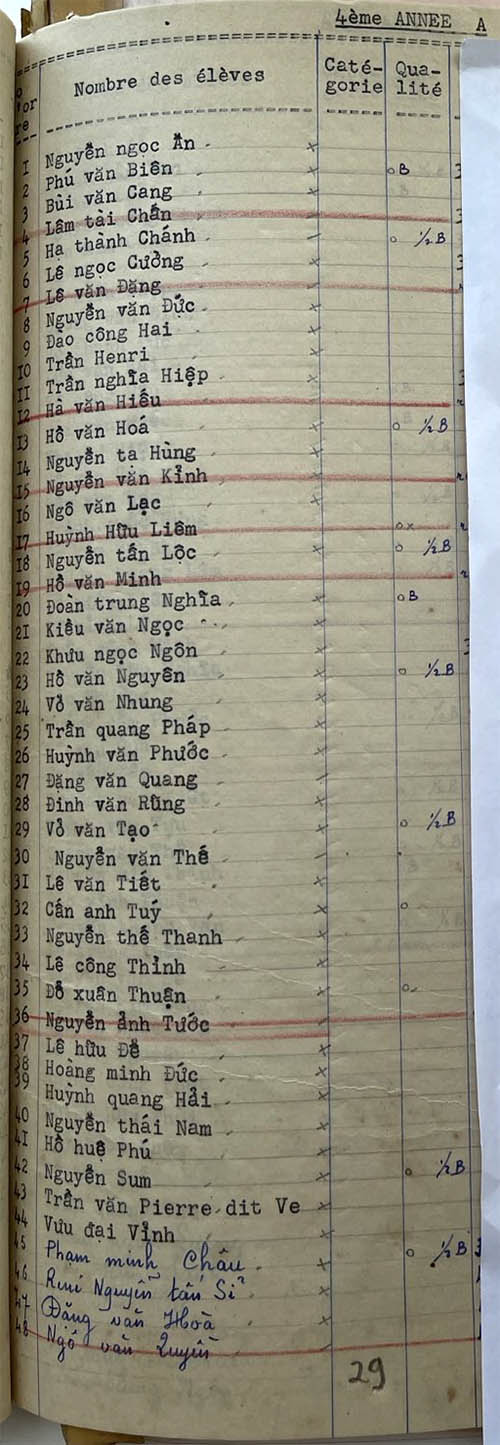 4ème ANNEE A
Nombre des élèves Caté- gorie Qua- lité
1 Nguyễn ngọc Ẩn x
2 Phú văn Biên x o B
3 Bùi văn Cang x
4 Lâm tài Chấn
5 Hạ thành Chánh o 1/2 B
6 Lê ngọc Cưởng x
7 Lê văn Đặng
8 Nguyễn văn Đức x
9 Đao công Hai x
10 Trần Henri x
11 Trần nghĩa Hiệp x
12 Hà văn Hiếu
13 Hồ văn Hoá x o 1/2 B
14 Nguyễn ta Hùng x
15 Nguyễn văn Kỉnh
16 Ngô văn Lạc x
17 Huỳnh Hữu Liêm ox
18 Nguyễn tấn Lộc x o 1/2 B
19 Hồ văn Minh
20 Đoàn trung Nghĩa x o B
21 Kiều văn Ngọc x
22 Khưu ngọc Ngôn x
23 Hồ văn Nguyên x o 1/2 B
24 Vỏ văn Nhung x
25 Trần quang Pháp x
26 Huỳnh văn Phước x
27 Đặng văn Quang
28 Đinh văn Rũng x
29 Vỏ văn Tạo x o 1/2 B
30 Nguyễn văn Thế
31 Lê văn Tiết x
32 Cấn anh Tuý x o
33 Nguyễn thế Thanh x
34 Lê công Thỉnh x
35 Đỗ xuân Thuận x o
36 Nguyễn ảnh Tước
37 Lê hữu Đễ x
38 Hoàng minh Đức x
39 Huỳnh quang Hải x
40 Nguyễn thái Nam x
41 Hồ huệ Phú x
42 Nguyễn Sum x o 1/2 B
43 Trần văn Pierre dit Ve x
44 Vưu đại Vỉnh x
45 Phạm minh Châu x o 1/2 B
46 René Nguyễn tấn Sỉ x
47 Đặng văn Hoà x
48 Ngô văn Quyền
29